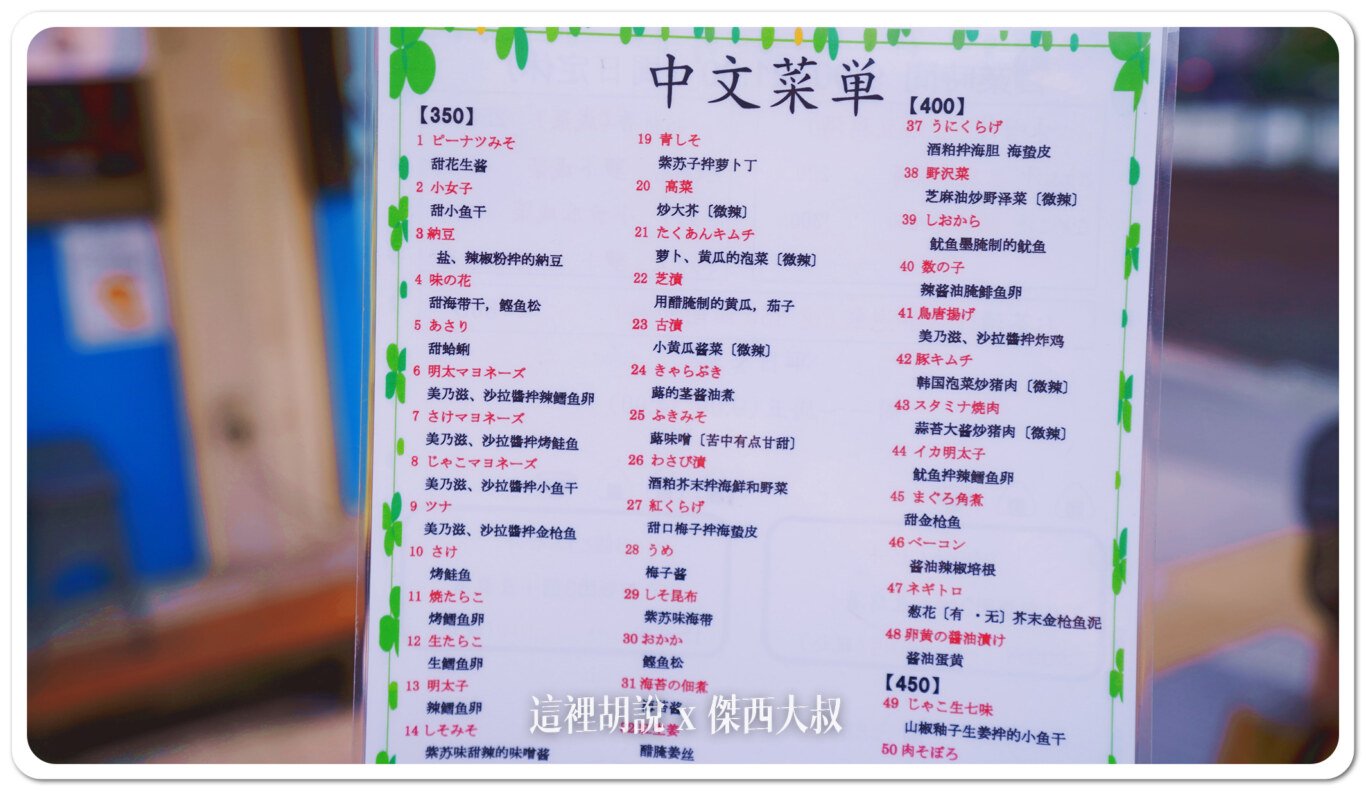 中文菜単
【350】
1 ピーナツみそ
甜花生酱
2 小女子
甜小鱼干
3 納豆
盐、辣椒粉拌的納豆
4 味の花
甜海带干，鲣鱼松
5 あさり
甜蛤蜊
6 明太マヨネーズ
美乃滋、沙拉醬拌辣鳕鱼卵
7 さけマヨネーズ
美乃滋、沙拉醬拌烤鮭鱼
8 じゃこマヨネーズ
美乃滋、沙拉醬拌小鱼干
9 ツナ
美乃滋、沙拉醬拌金枪鱼
10 さけ
烤鮭鱼
11 焼たらこ
烤鳕鱼卵
12 生たらこ
生鳕鱼卵
13 明太子
辣鳕鱼卵
14 しそみそ
紫苏味甜辣的味噌酱
19 青しそ
紫苏子拌萝卜丁
20 高菜
炒大芥〔微辣〕
21 たくあんキムチ
萝卜、黄瓜的泡菜〔微辣〕
22 芝漬
用醋腌制的黄瓜，茄子
23 古漬
小黄瓜酱菜〔微辣〕
24 きゃらぶき
蕗的茎酱油煮
25 ふきみそ
蕗味噌〔苦中有点甘甜〕
26 わさび漬
酒粕芥末拌海鮮和野菜
27 紅くらげ
甜口梅子拌海蛰皮
28 うめ
梅子酱
29 しそ昆布
紫苏味海带
30 おかか
鲣鱼松
31 海苔の佃煮
醋腌姜丝
【400】
37 うにくらげ
酒粕拌海胆 海蛰皮
38 野沢菜
芝麻油炒野泽菜〔微辣〕
39 しおから
鱿鱼墨腌制的鱿鱼
40 数の子
辣酱油腌鲱鱼卵
41 鳥唐揚げ
美乃滋、沙拉醬拌炸鸡
42 豚キムチ
韩国泡菜炒猪肉〔微辣〕
43 スタミナ焼肉
蒜苔大酱炒猪肉〔微辣〕
44 イカ明太子
鱿鱼拌辣鳕鱼卵
45 まぐろ角煮
甜金枪鱼
46 ベーコン
酱油辣椒培根
47 ネギトロ
葱花〔有 ・无〕芥末金枪鱼泥
48 卵黄の醤油漬け
酱油蛋黄
【450】
49 じゃこ生七味
山椒釉子生姜拌的小鱼干
50 肉そぼろ
這裡胡說 x 傑西大叔